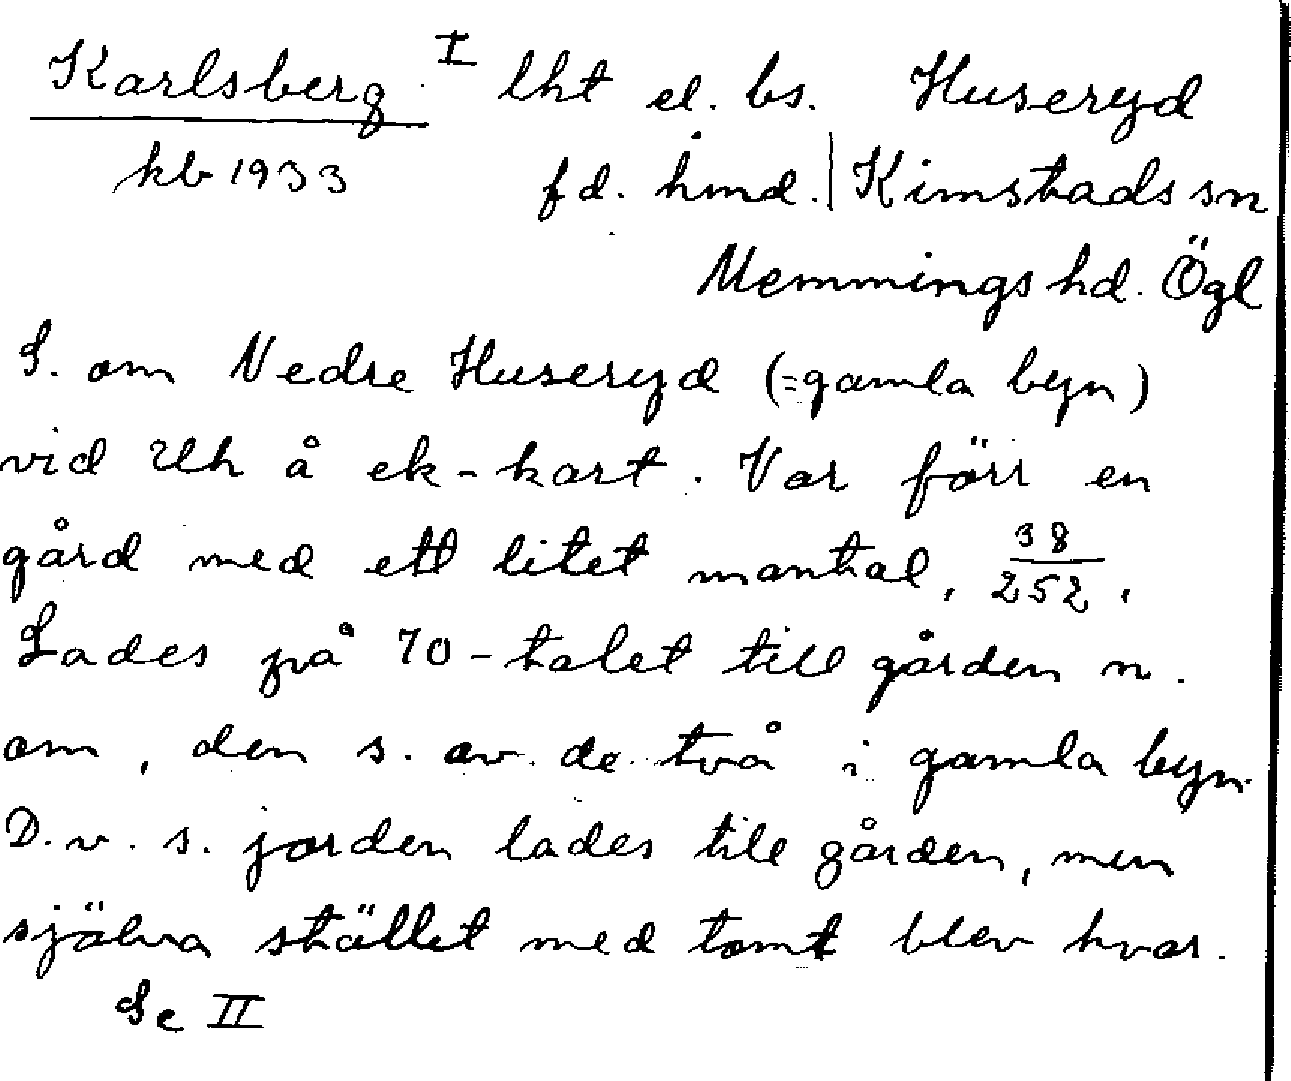 Karlsberg I lht el. bs. Huseryd
kb 1933 fd. hmd. | Kimstads sn
Memmings hd. Ögl
S. om Nedre Huseryd (=gamla byn)
vid Uh å ek-kart. Var förr en
gård med ett litet mantal, 38/252,
Lades på 70-talet till gården n.
om, den s. av de två i gamla byn.
D.v.s. jorden lades till gården, men
själva stället med tomt blev kvar.
Se II